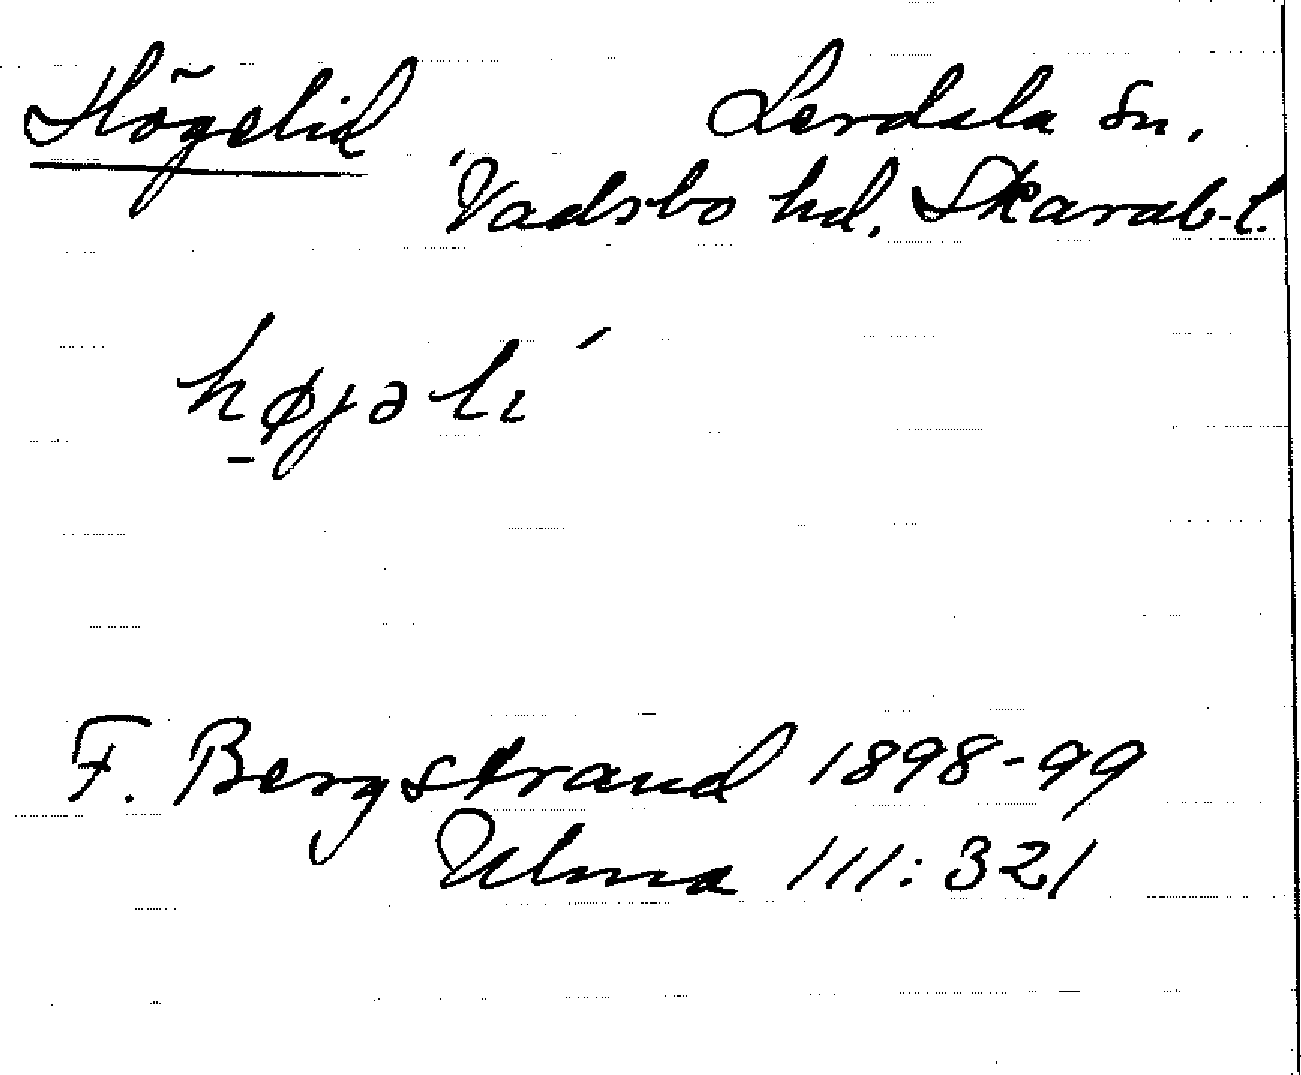 Högelid Lerdala sn,
Vadsbo hd, Skarab-l.
højəli ́
F. Bergstrand 1898-99
Ulma 111:321